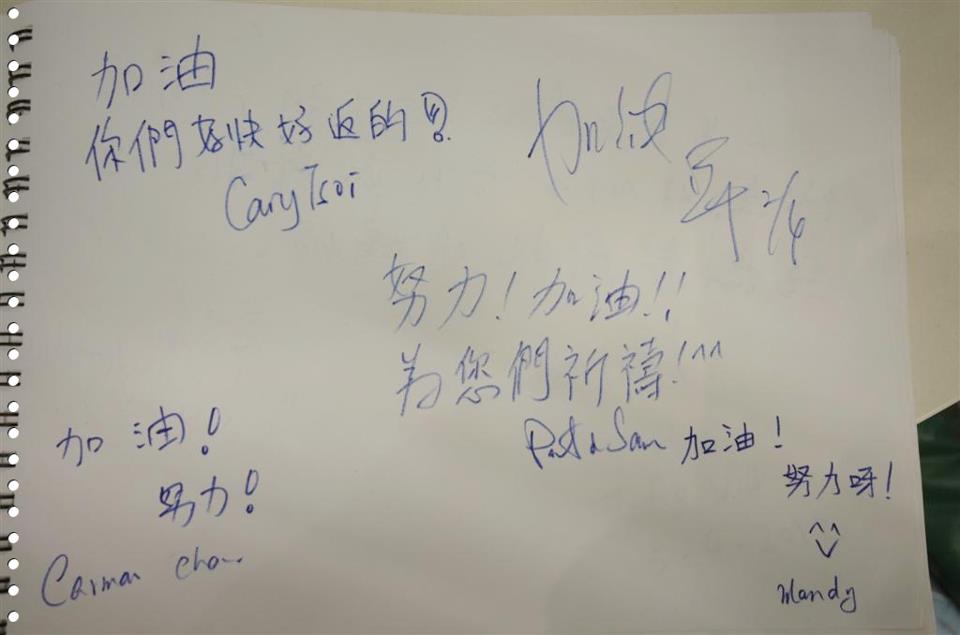 加油
你們好快好返的!!
Cary Tsoi
加油
2/4
努力!加油!!
為您們祈禱!^^
Pat & Sam
加油!
努力!
Carman Chow
加油!
努力呀!
Mandy